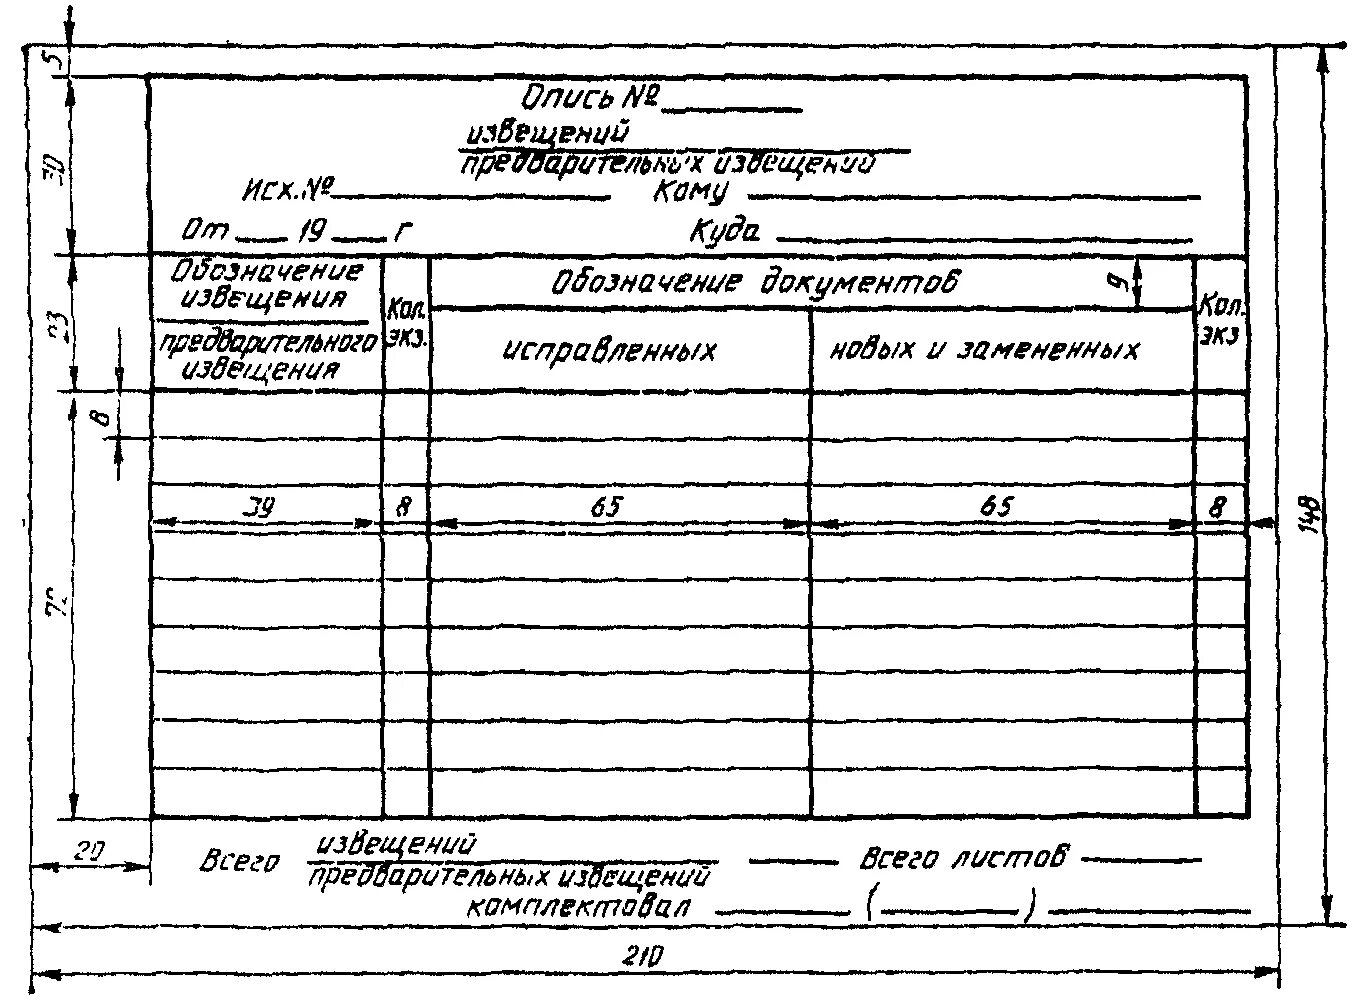 5
Опись №
извещений
предварительных извещений
30
Исх. № Кому
От 19 г Куда
Обозначение
извещения
предварительного
извещения
Кол.
экз.
Обозначение документов
9
исправленных
новых и замененных
Кол.
экз
23
8
39 8 65 65 8
148
72
20
Всего извещений
предварительных извещений
Всего листов
комплектовал ( )
210